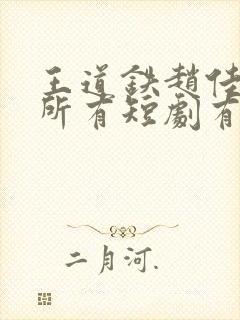 王道鉄趙佳
所有短劇有
二月河.